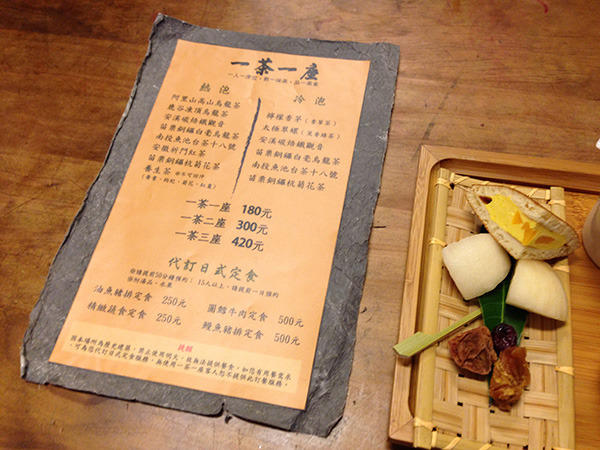 一茶一座
熱泡
阿里山高山烏龍茶
鹿谷凍頂烏龍茶
安溪碳焙鐵觀音
苗栗銅鑼白毫烏龍茶
南投魚池台茶十八號
安徽祈門紅茶
苗栗銅鑼杭菊花茶
養生茶
冷泡
檸檬香茅(香草茶)
太極翠螺
安溪碳焙鐵觀音
苗栗銅鑼白毫烏龍茶
南投魚池台茶十八號
苗栗銅鑼杭菊花茶
一茶一座 180元
一茶二座 300元
一茶三座 420元
代訂日式定食
油魚豬排定食 250元
精緻蔬食定食 250元
圓鱈牛肉定食 500元
鰻魚豬排定食 500元